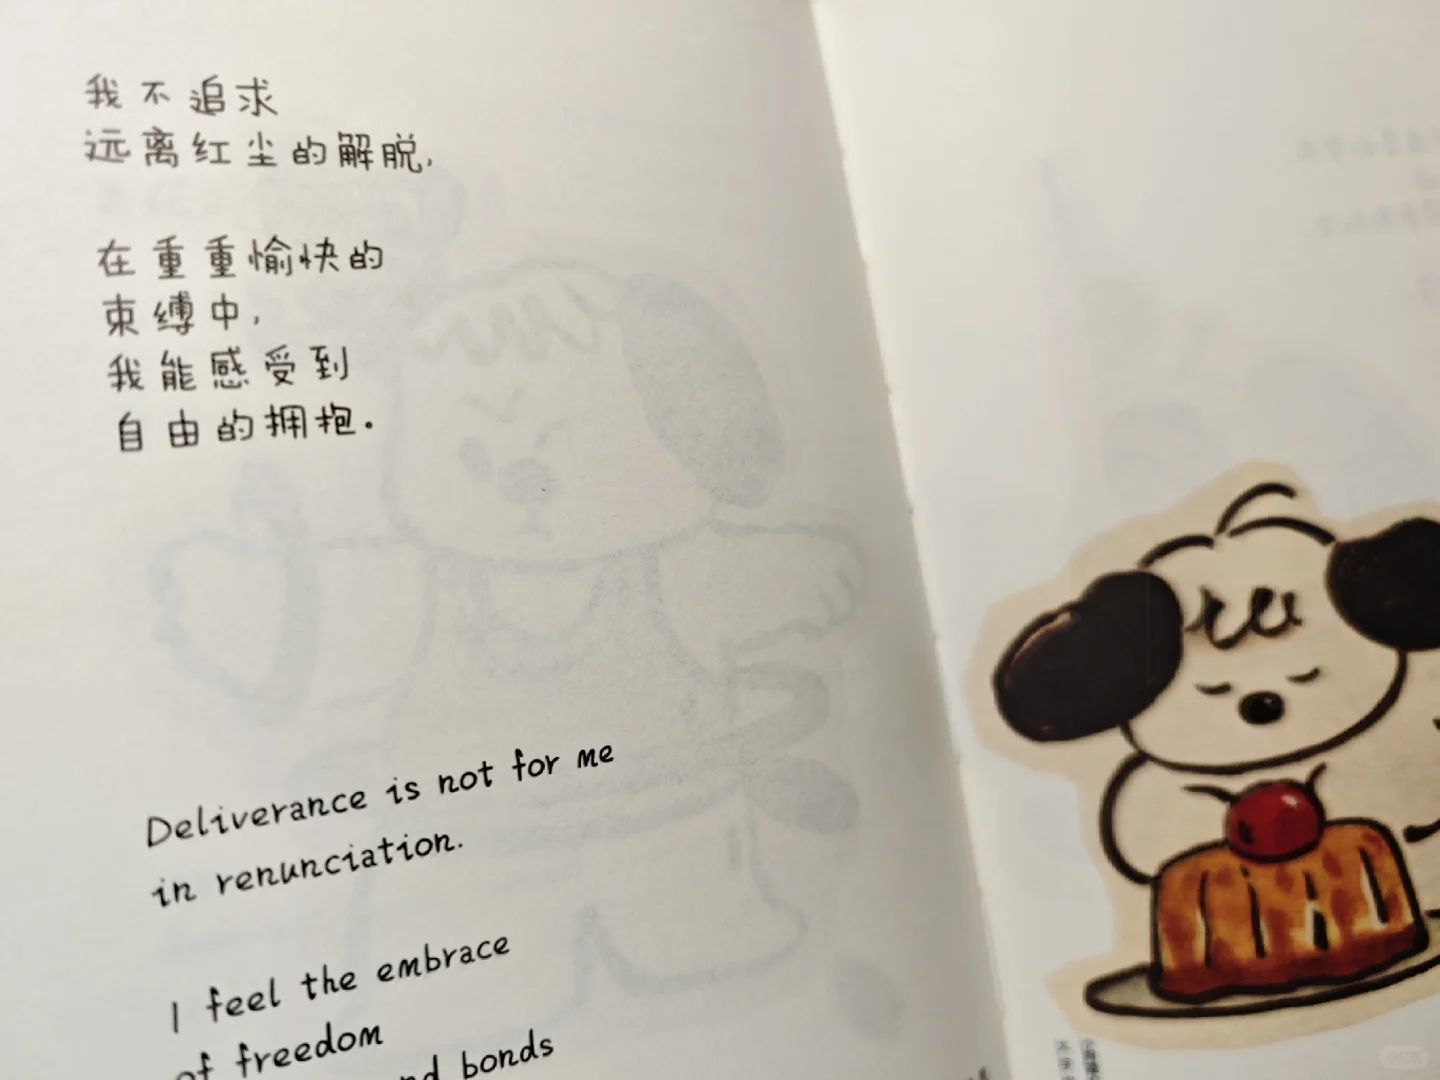 我不追求
远离红尘的解脱,
在重重愉快的
束缚中,
我能感受到
自由的拥抱.
Deliverance is not for me
in renunciation.
I feel the embrace
of freedom
bonds